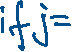 if j=